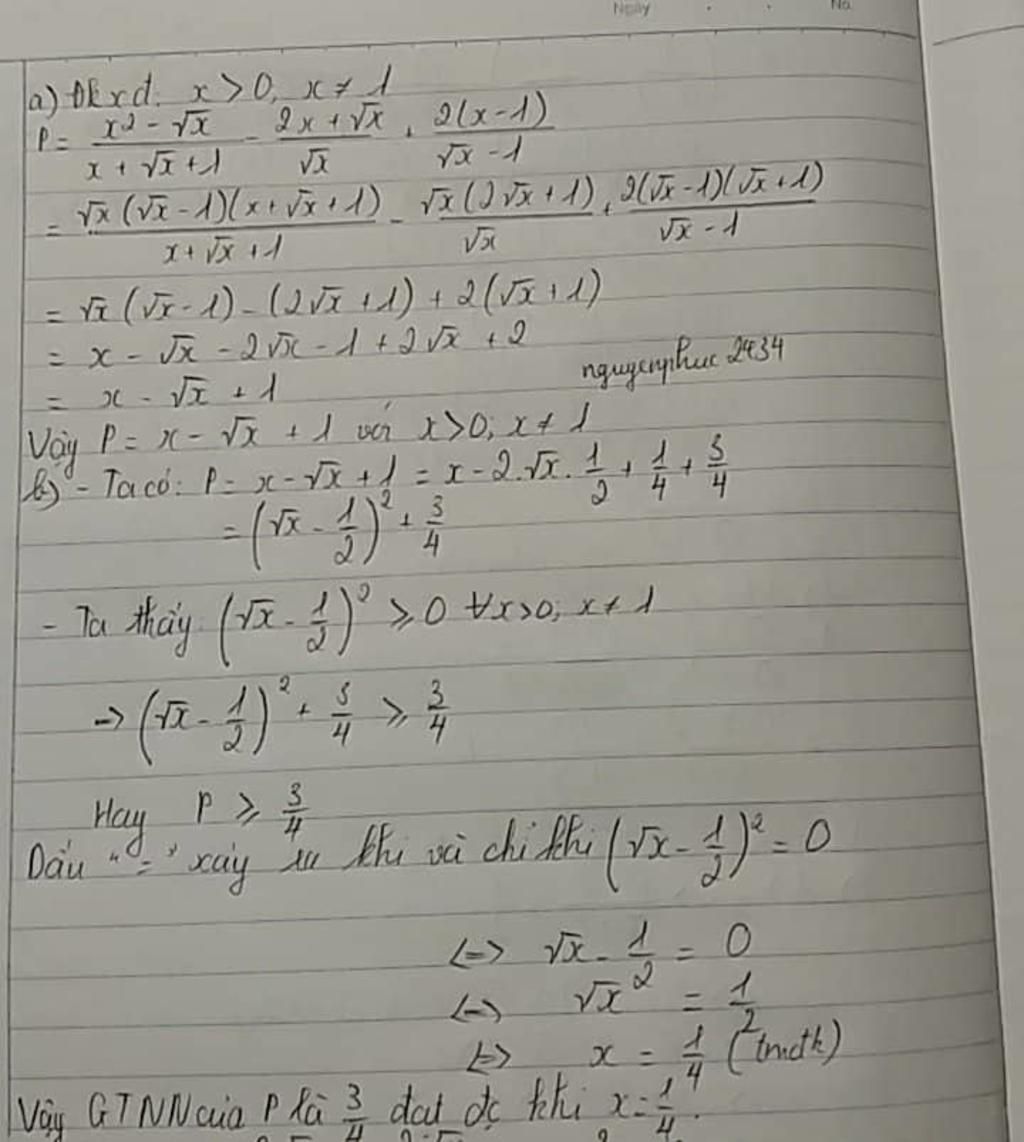 Ngày . . No.
a) Đkxđ: x > 0, x ≠ 1
P = \frac{x² - √x}{x + √x + 1} - \frac{2x + √x}{√x} + \frac{2(x - 1)}{√x - 1}
= \frac{√x(√x - 1)(x + √x + 1)}{x + √x + 1} - \frac{√x(2√x + 1)}{√x} + \frac{2(√x - 1)(√x + 1)}{√x - 1}
= √x(√x - 1) - (2√x + 1) + 2(√x + 1)
= x - √x - 2√x - 1 + 2√x + 2
= x - √x + 1
nguyenphuc2434
Vậy P = x - √x + 1 với x > 0; x ≠ 1
b) - Ta có: P = x - √x + 1 = x - 2.√x.\frac{1}{2} + \frac{1}{4} + \frac{3}{4}
= (√x - \frac{1}{2})² + \frac{3}{4}
- Ta thấy: (√x - \frac{1}{2})² ≥ 0 ∀x>0; x ≠ 1
→ (√x - \frac{1}{2})² + \frac{3}{4} ≥ \frac{3}{4}
Hay P ≥ \frac{3}{4}
Dấu "=" xảy ra khi và chỉ khi (√x - \frac{1}{2})² = 0
<=> √x - \frac{1}{2} = 0
<=> √x = \frac{1}{2}
<=> x = \frac{1}{4} (tmđk)
Vậy GTNN của P là \frac{3}{4} đạt đc khi x = \frac{1}{4}.